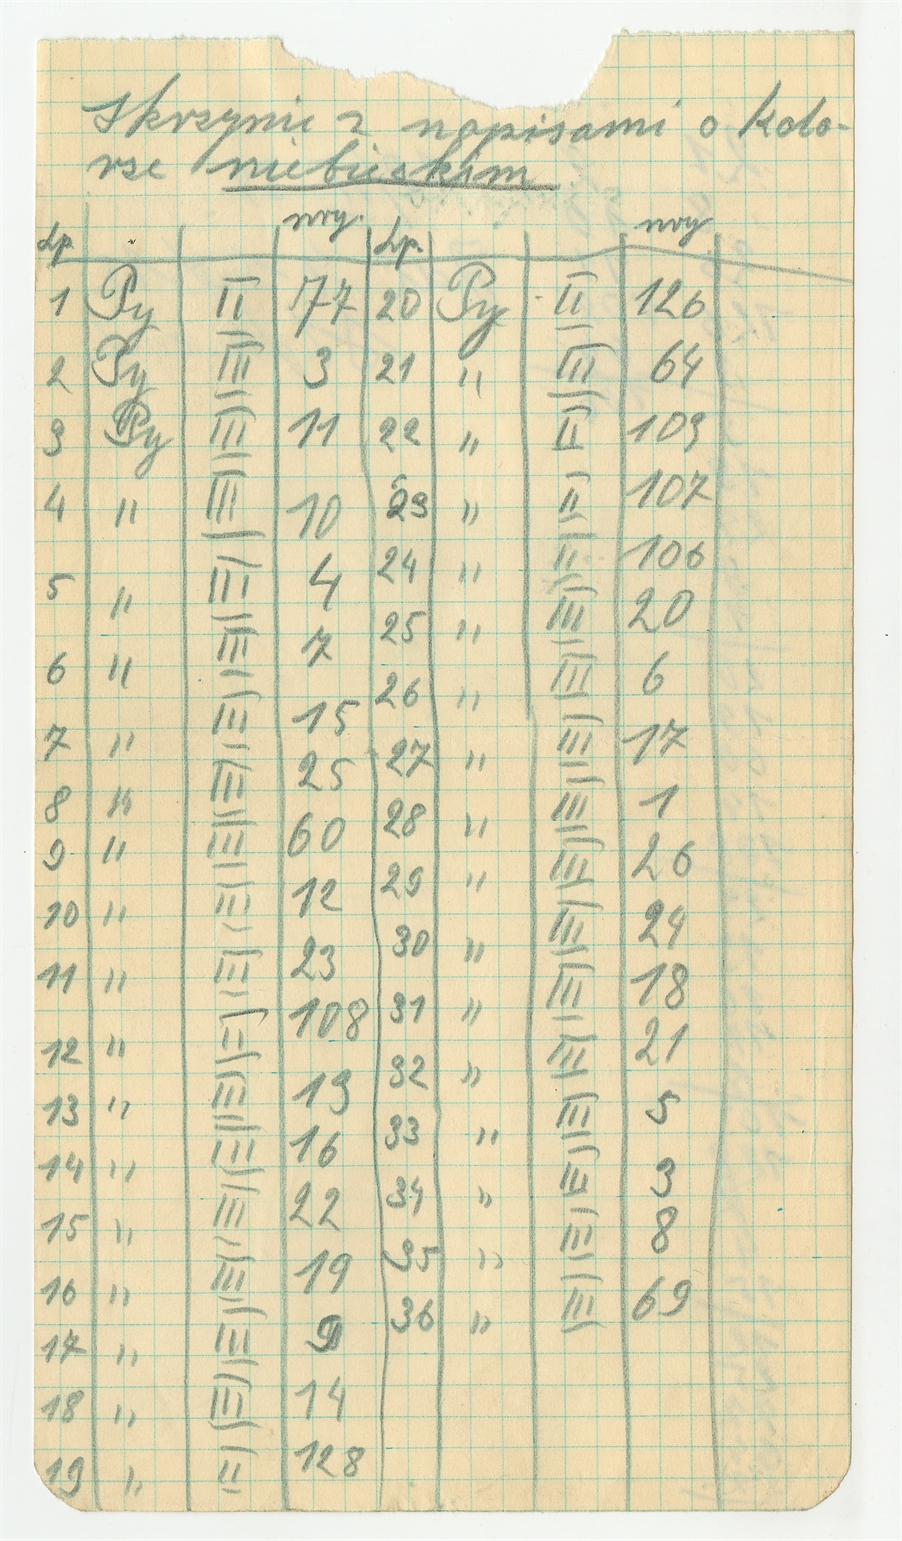 Skrzynie z napisami o kolo-
rze niebieskim
Lp. nry. Lp. nry
1 Py II 77 20 Py II 126
2 Py III 3 21 " III 64
3 Py III 11 22 " II 109
4 " III 10 23 " II 107
5 " III 4 24 " II 106
6 " III 7 25 " III 20
7 " III 15 26 " III 6
8 " III 25 27 " III 17
9 " III 60 28 " III 1
10 " III 12 29 " III 26
11 " III 23 30 " III 24
12 " II 108 31 " III 18
13 " III 13 32 " III 21
14 " III 16 33 " III 5
15 " III 22 34 " III 3
16 " III 19 35 " III 8
17 " III 9 36 " III 69
18 " III 14
19 " II 128